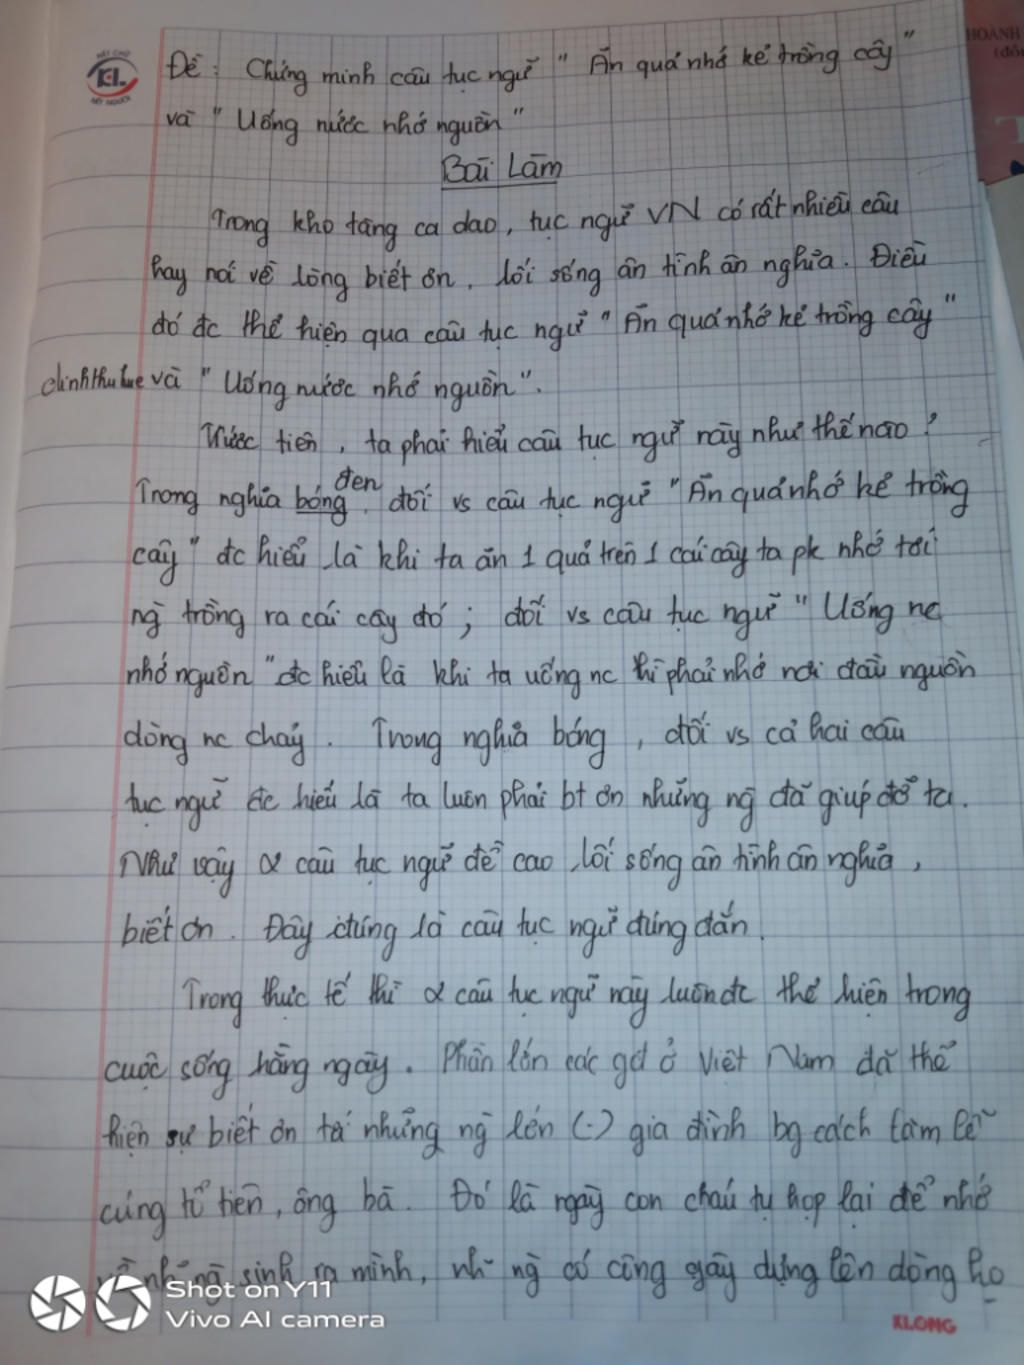 NÉT CHỮ
KL
NẾT NGƯỜI
HOÀNH
Đề: Chứng minh câu tục ngữ " Ăn quả nhớ kẻ trồng cây "
và " Uống nước nhớ nguồn "
Bài Làm
Trong kho tàng ca dao, tục ngữ VN có rất nhiều câu
hay nói về lòng biết ơn, lối sống ân tình ân nghĩa. Điều
đó đc thể hiện qua câu tục ngữ " Ăn quả nhớ kẻ trồng cây "
và " Uống nước nhớ nguồn ".
Trước tiên, ta phải hiểu câu tục ngữ này như thế nào ?
đen
Trong nghĩa bóng, đối vs câu tục ngữ " Ăn quả nhớ kẻ trồng
cây " đc hiểu là khi ta ăn 1 quả trên 1 cái cây ta pk nhớ tới
ng trồng ra cái cây đó ; đối vs câu tục ngữ " Uống nc
nhớ nguồn " đc hiểu là khi ta uống nc thì phải nhớ nơi đầu nguồn
dòng nc chảy. Trong nghĩa bóng, đối vs cả hai câu
tục ngữ đc hiểu là ta luôn phải bt ơn những ng đã giúp đỡ ta.
Như vậy 2 câu tục ngữ đề cao lối sống ân tình ân nghĩa,
biết ơn. Đây chúng là câu tục ngữ đúng đắn.
Trong thực tế thì 2 câu tục ngữ này luôn đc thể hiện trong
cuộc sống hằng ngày. Phần lớn các gđ ở Việt Nam đã thể
hiện sự biết ơn tới những ng lớn (-) gia đình bg cách làm lễ
cúng tổ tiên, ông bà. Đó là ngày con cháu tụ họp lại để nhớ
về những sinh ra mình, nh~ ng có công gây dựng lên dòng họ
Shot on Y11
Vivo AI camera
KLONG